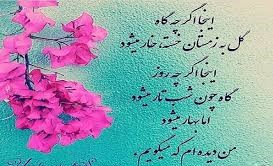 اینجا اگر چه گاه
گل به زمستان خسته خار میشود
اینجا اگر چه روز
گاه چون شب تار میشود
اما بهار میشود
من دیده ام که میگویم.